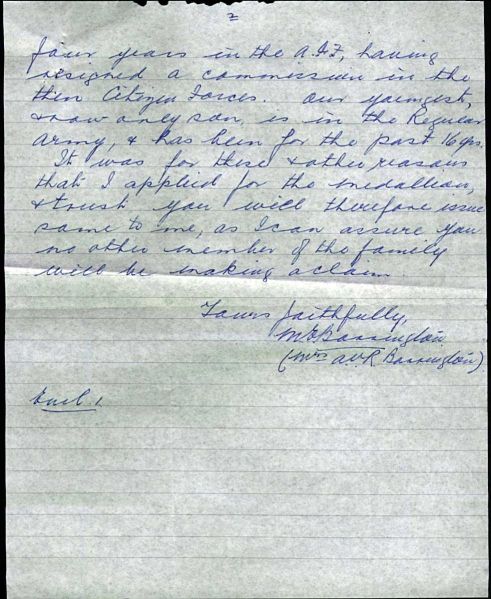 2
four years in the A.I.F, having
resigned a commission in the
then Citizen Forces. Our youngest,
& now only son, is in the Regular
Army, & has been for the past 16 yrs.
It was for these & other reasons
that I applied for the medallion,
& trust you will therefore issue
same to me, as I can assure you
no other member of the family
will be making a claim.
Yours faithfully,
M E Barrington
(Mrs A V R Barrington)
Encl 1